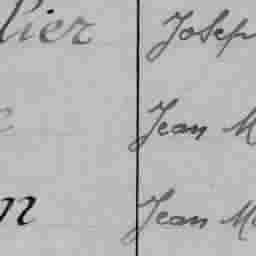 lier Josep
e Jean M
n Jean Ma